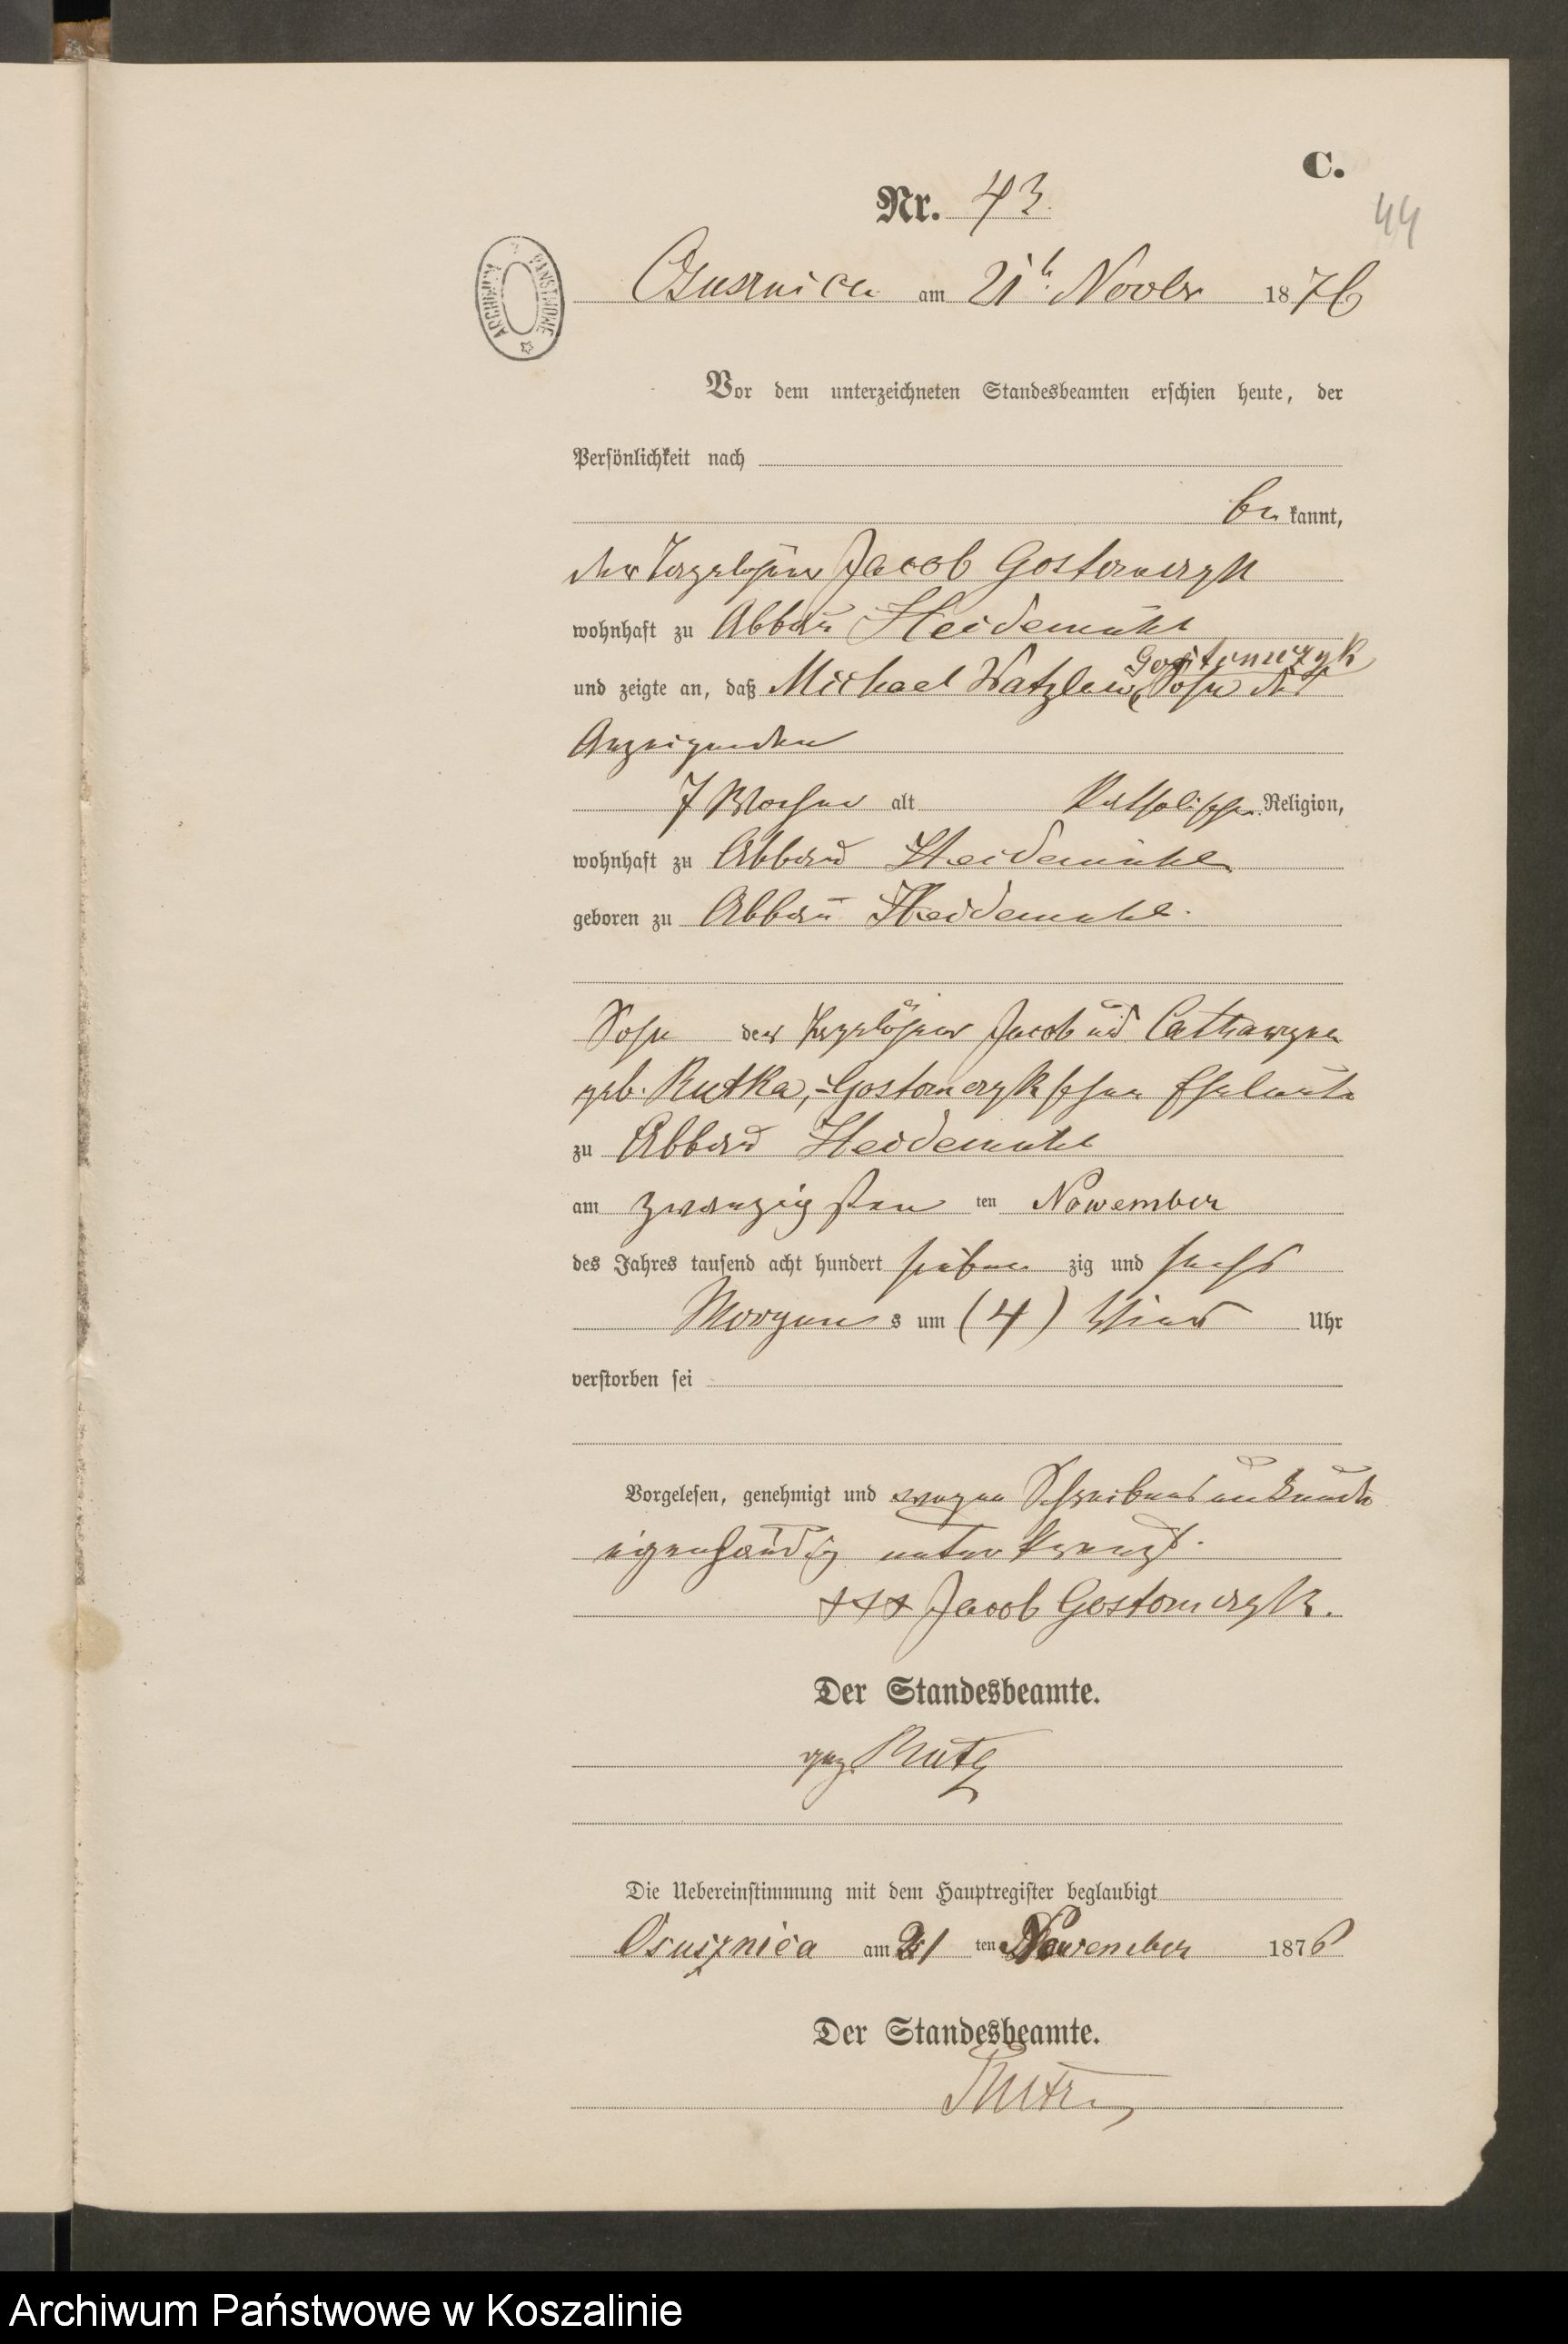 C.
Nr. 43
44
ARCHIWUM PAŃSTWOWE
Osusznica am 21t Novbr 1876
Vor dem unterzeichneten Standesbeamten erschien heute, der
Persönlichkeit nach
be kannt,
der Tagelöhner Jacob Gostomczyk
wohnhaft zu Abbau Heidemühl
Gostomczyk
und zeigte an, daß Michael Watzlaw, Sohn des
Anzeigenden
7 Wochen alt Katholischer Religion,
wohnhaft zu Abbau Heidemühle
geboren zu Abbau Heidemühle.
Sohn der Tagelöhner Jacob und Catharzyna
geb. Rutka, Gostomczykschen Eheleute
zu Abbau Heidemühl
am zwanzigsten ten Nowember
des Jahres tausend acht hundert sieben zig und sechs
Morgens s um (4) Vier Uhr
verstorben sei
Vorgelesen, genehmigt und wegen Schreibensunkunde
eigenhändig unterkreuzt.
+++ Jacob Gostomczyk.
Der Standesbeamte.
gez. Rutz
Die Uebereinstimmung mit dem Hauptregister beglaubigt
Osusznica am 21 ten Nowember 1876
Der Standesbeamte.
Rutz
Archiwum Państwowe w Koszalinie